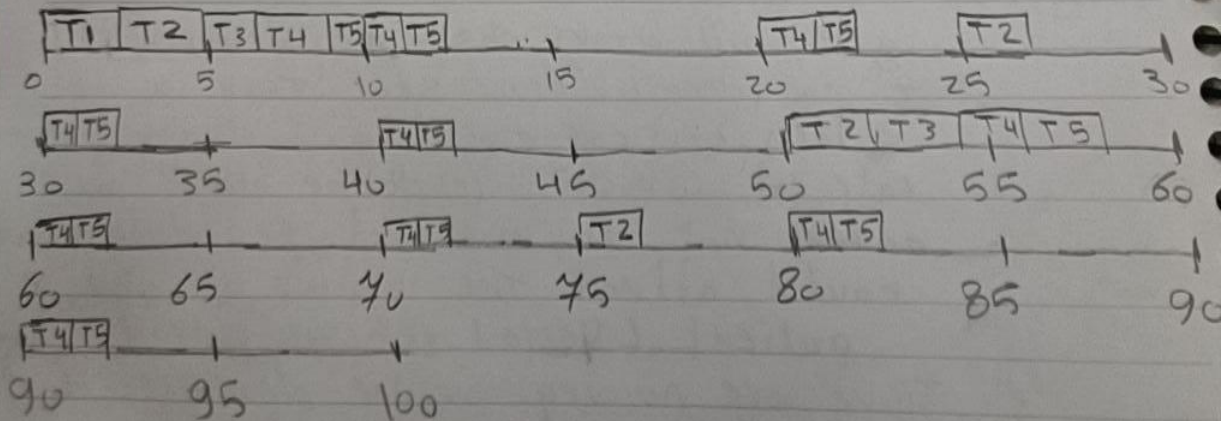 T1 T2 T3 T4 T5 T4 T5 T4 T5 T2
0 5 10 15 20 25 30
T4 T5 T4 T5 T2 T3 T4 T5
30 35 40 45 50 55 60
T4 T5 T4 T5 T2 T4 T5
60 65 70 75 80 85 90
T4 T5
90 95 100